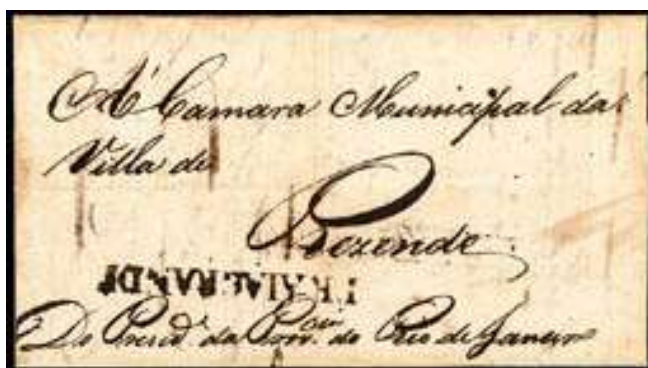 A' Camara Municipal da
Villa de
Rezende
PRAIAGRANDE
Do Presid.e da Prov.cia do Rio de Janeiro